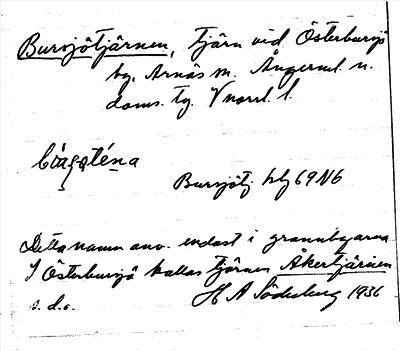 Bursjötjärnen, tjärn vid Österbursjö
by, Arnäs sn. Ångerml. n.
doms. tg. V norrl. l.
Bursjötj. hlz 69 N6
Detta namn anv. endast i grannbyarna
I Österbursjö kallas tjärnen Åkertjärnen
s. d. o.
H A Söderberg 1936